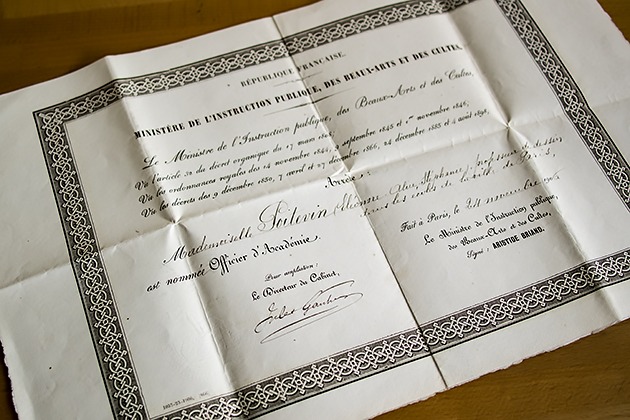 RÉPUBLIQUE FRANÇAISE.
MINISTÈRE DE L'INSTRUCTION PUBLIQUE, DES BEAUX-ARTS ET DES CULTES.
Le Ministre de l'Instruction publique, des Beaux-Arts et des Cultes,
Vu l'article 32 du décret organique du 17 mars
Vu les ordonnances royales des 14 novembre 1844, septembre 1845 et 1er novembre 1846,
Vu les décrets des 9 décembre 1850, 7 avril et 27 décembre 1866, 24 décembre 1885 et 4 août 1898,
Arrête :
Mademoiselle Poitevin professeur de dessin
dans les écoles de la ville de Paris,
est nommée Officier d'Académie.
Fait à Paris, le novembre
Le Ministre de l'Instruction publique,
des Beaux-Arts et des Cultes,
Signé : ARISTIDE BRIAND.
Pour ampliation :
Le Directeur du Cabinet,